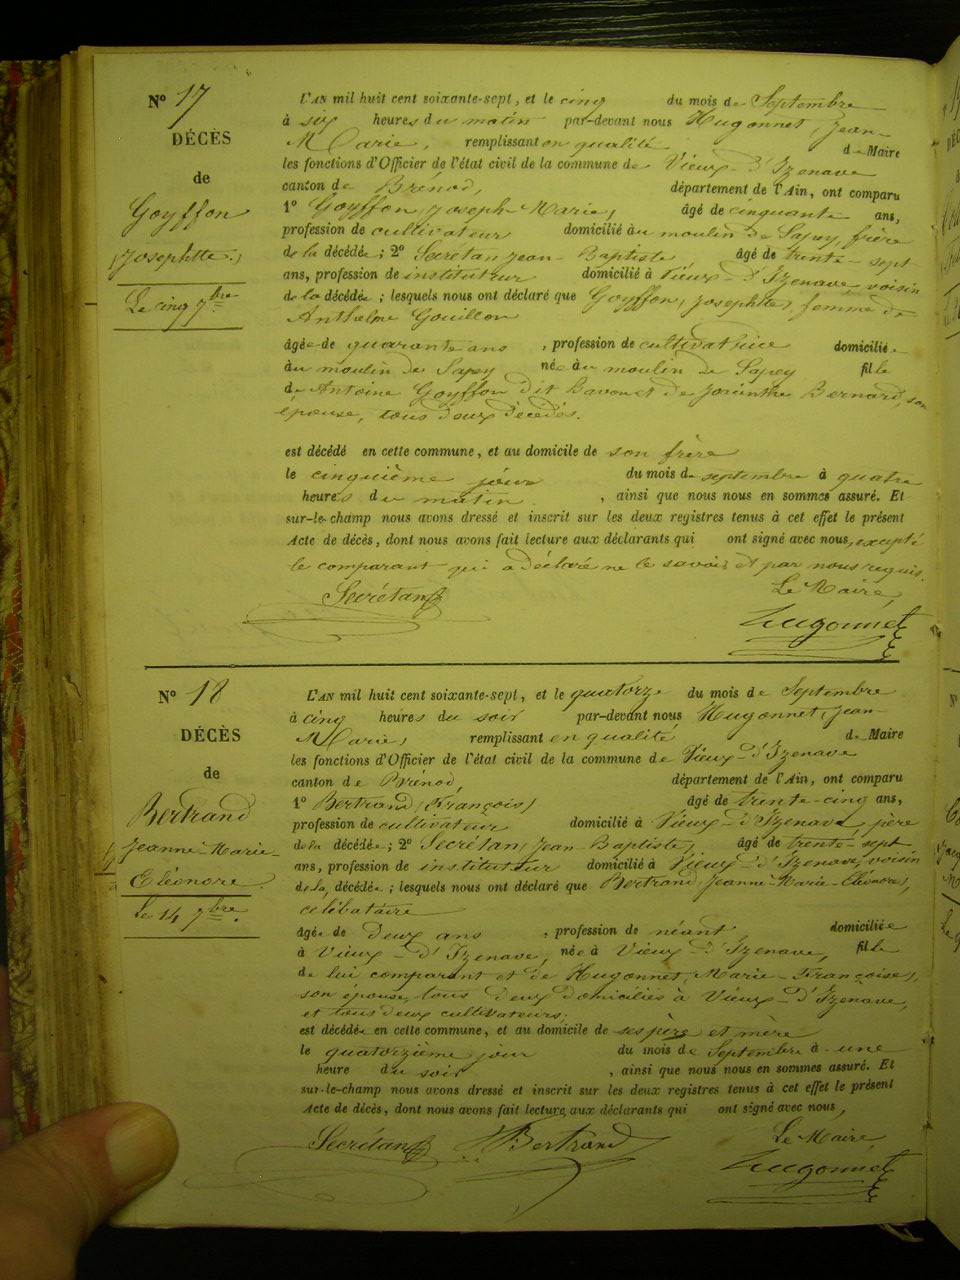 N° 17
DÉCÈS
de
Goyffon
(Josephtte.)
Le cinq 7bre
L'AN mil huit cent soixante-sept, et le cinq du mois de Septembre
à six heures du matin par-devant nous Hugonnet, Jean-
Marie, remplissant en qualité de Maire
les fonctions d'Officier de l'état civil de la commune de Vieux-d'Izenave
canton de Brénod, département de l'Ain, ont comparu
1° Goyffon, Joseph-Marie, âgé de cinquante ans,
profession de cultivateur domicilié au moulin de Sapey, frère
de la décédée; 2° Secrétan Jean-Baptiste âgé de trente-sept
ans, profession de instituteur domicilié à Vieux-d'Izenave, voisin
de la décédée; lesquels nous ont déclaré que Goyffon, Josephte, femme de
Anthelme Gouillon
âgée de quarante ans, profession de cultivatrice domiciliée
au moulin de Sapey née au moulin de Sapey fille
de Antoine Goyffon dit Bavonet de Jacinthe Bernard, son
épouse, tous deux décédés.
est décédé en cette commune, et au domicile de son frère
le cinquième jour du mois de septembre à quatre
heures du matin, ainsi que nous nous en sommes assuré. Et
sur-le-champ nous avons dressé et inscrit sur les deux registres tenus à cet effet le présent
Acte de décès, dont nous avons fait lecture aux déclarants qui ont signé avec nous, excepté
le comparant qui a déclaré ne le savoir et par nous requis.
Secrétan
Le Maire,
Hugonnet
N° 18
DÉCÈS
de
Bertrand
Jeanne-Marie-
Eléonore.
Le 14 7bre.
L'AN mil huit cent soixante-sept, et le quatorze du mois de Septembre
à cinq heures du soir par-devant nous Hugonnet, Jean-
Marie, remplissant en qualité de Maire
les fonctions d'Officier de l'état civil de la commune de Vieux-d'Izenave
canton de Brénod, département de l'Ain, ont comparu
1° Bertrand, (François) âgé de trente-cinq ans,
profession de cultivateur domicilié à Vieux-d'Izenave, père
de la décédée; 2° Secrétan, Jean-Baptiste, âgé de trente-sept
ans, profession de instituteur domicilié à Vieux-d'Izenave, voisin
de la décédée; lesquels nous ont déclaré que Bertrand Jeanne-Marie-Eléonore,
célibataire
âgée de deux ans, profession de néant domiciliée
à Vieux-d'Izenave, née à Vieux-d'Izenave, fille
de lui comparant et de Hugonnet, Marie-Françoise,
son épouse, tous deux domiciliés à Vieux-d'Izenave,
et tous deux cultivateurs;
est décédée en cette commune, et au domicile de ses père et mère
le quatorzième jour du mois de Septembre à une
heure du soir, ainsi que nous nous en sommes assuré. Et
sur-le-champ nous avons dressé et inscrit sur les deux registres tenus à cet effet le présent
Acte de décès, dont nous avons fait lecture aux déclarants qui ont signé avec nous,
Secrétan Bertrand
Le Maire,
Hugonnet